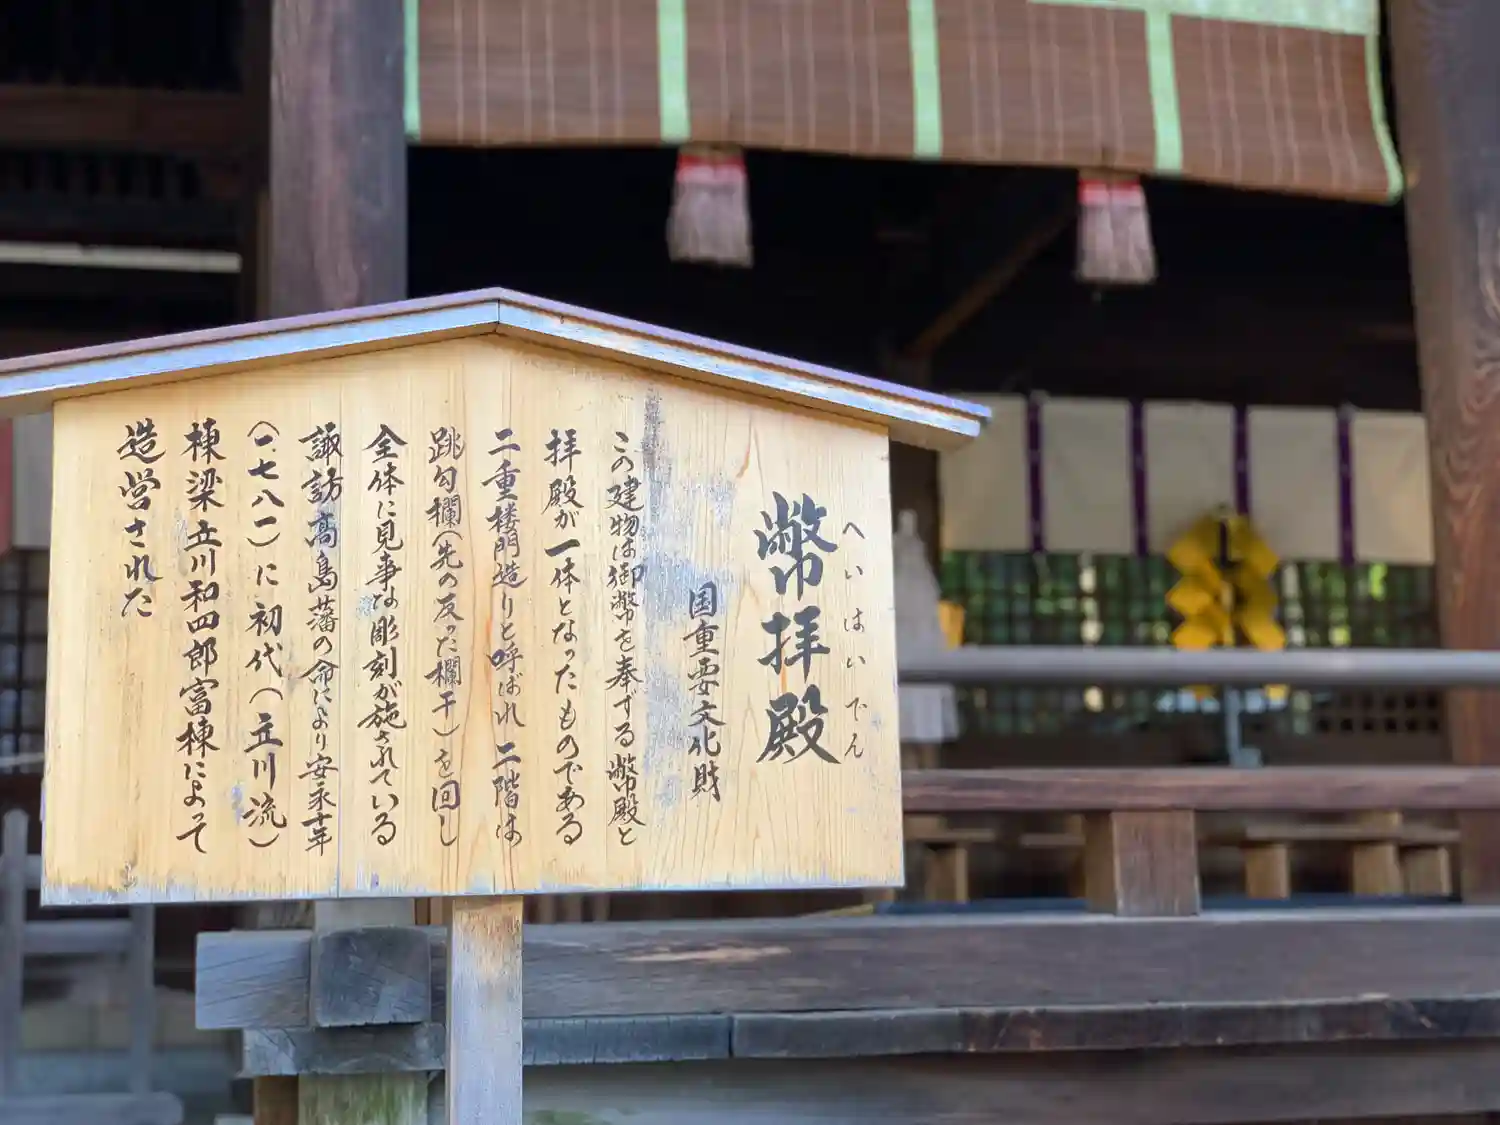 へいはいでん
幣拝殿
国重要文化財
この建物は御幣を奉ずる幣殿と
拝殿が一体となったものである
二重楼門造りと呼ばれ 二階は
跳勾欄(先の反った欄干)を回し
全体に見事な彫刻が施されている
諏訪高島藩の命により安永十年
(一七八一)に初代(立川流)
棟梁立川和四郎富棟によって
造営された